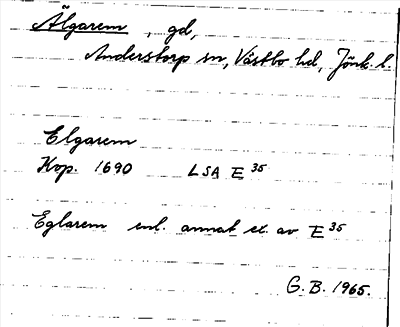 Älgarem, gd,
Anderstorp sn, Västbo hd, Jönk. l.
Elgarem
Kop. 1690 LSA E 35
Eglarem enl. annat ex. av E 35
G. B. 1965.